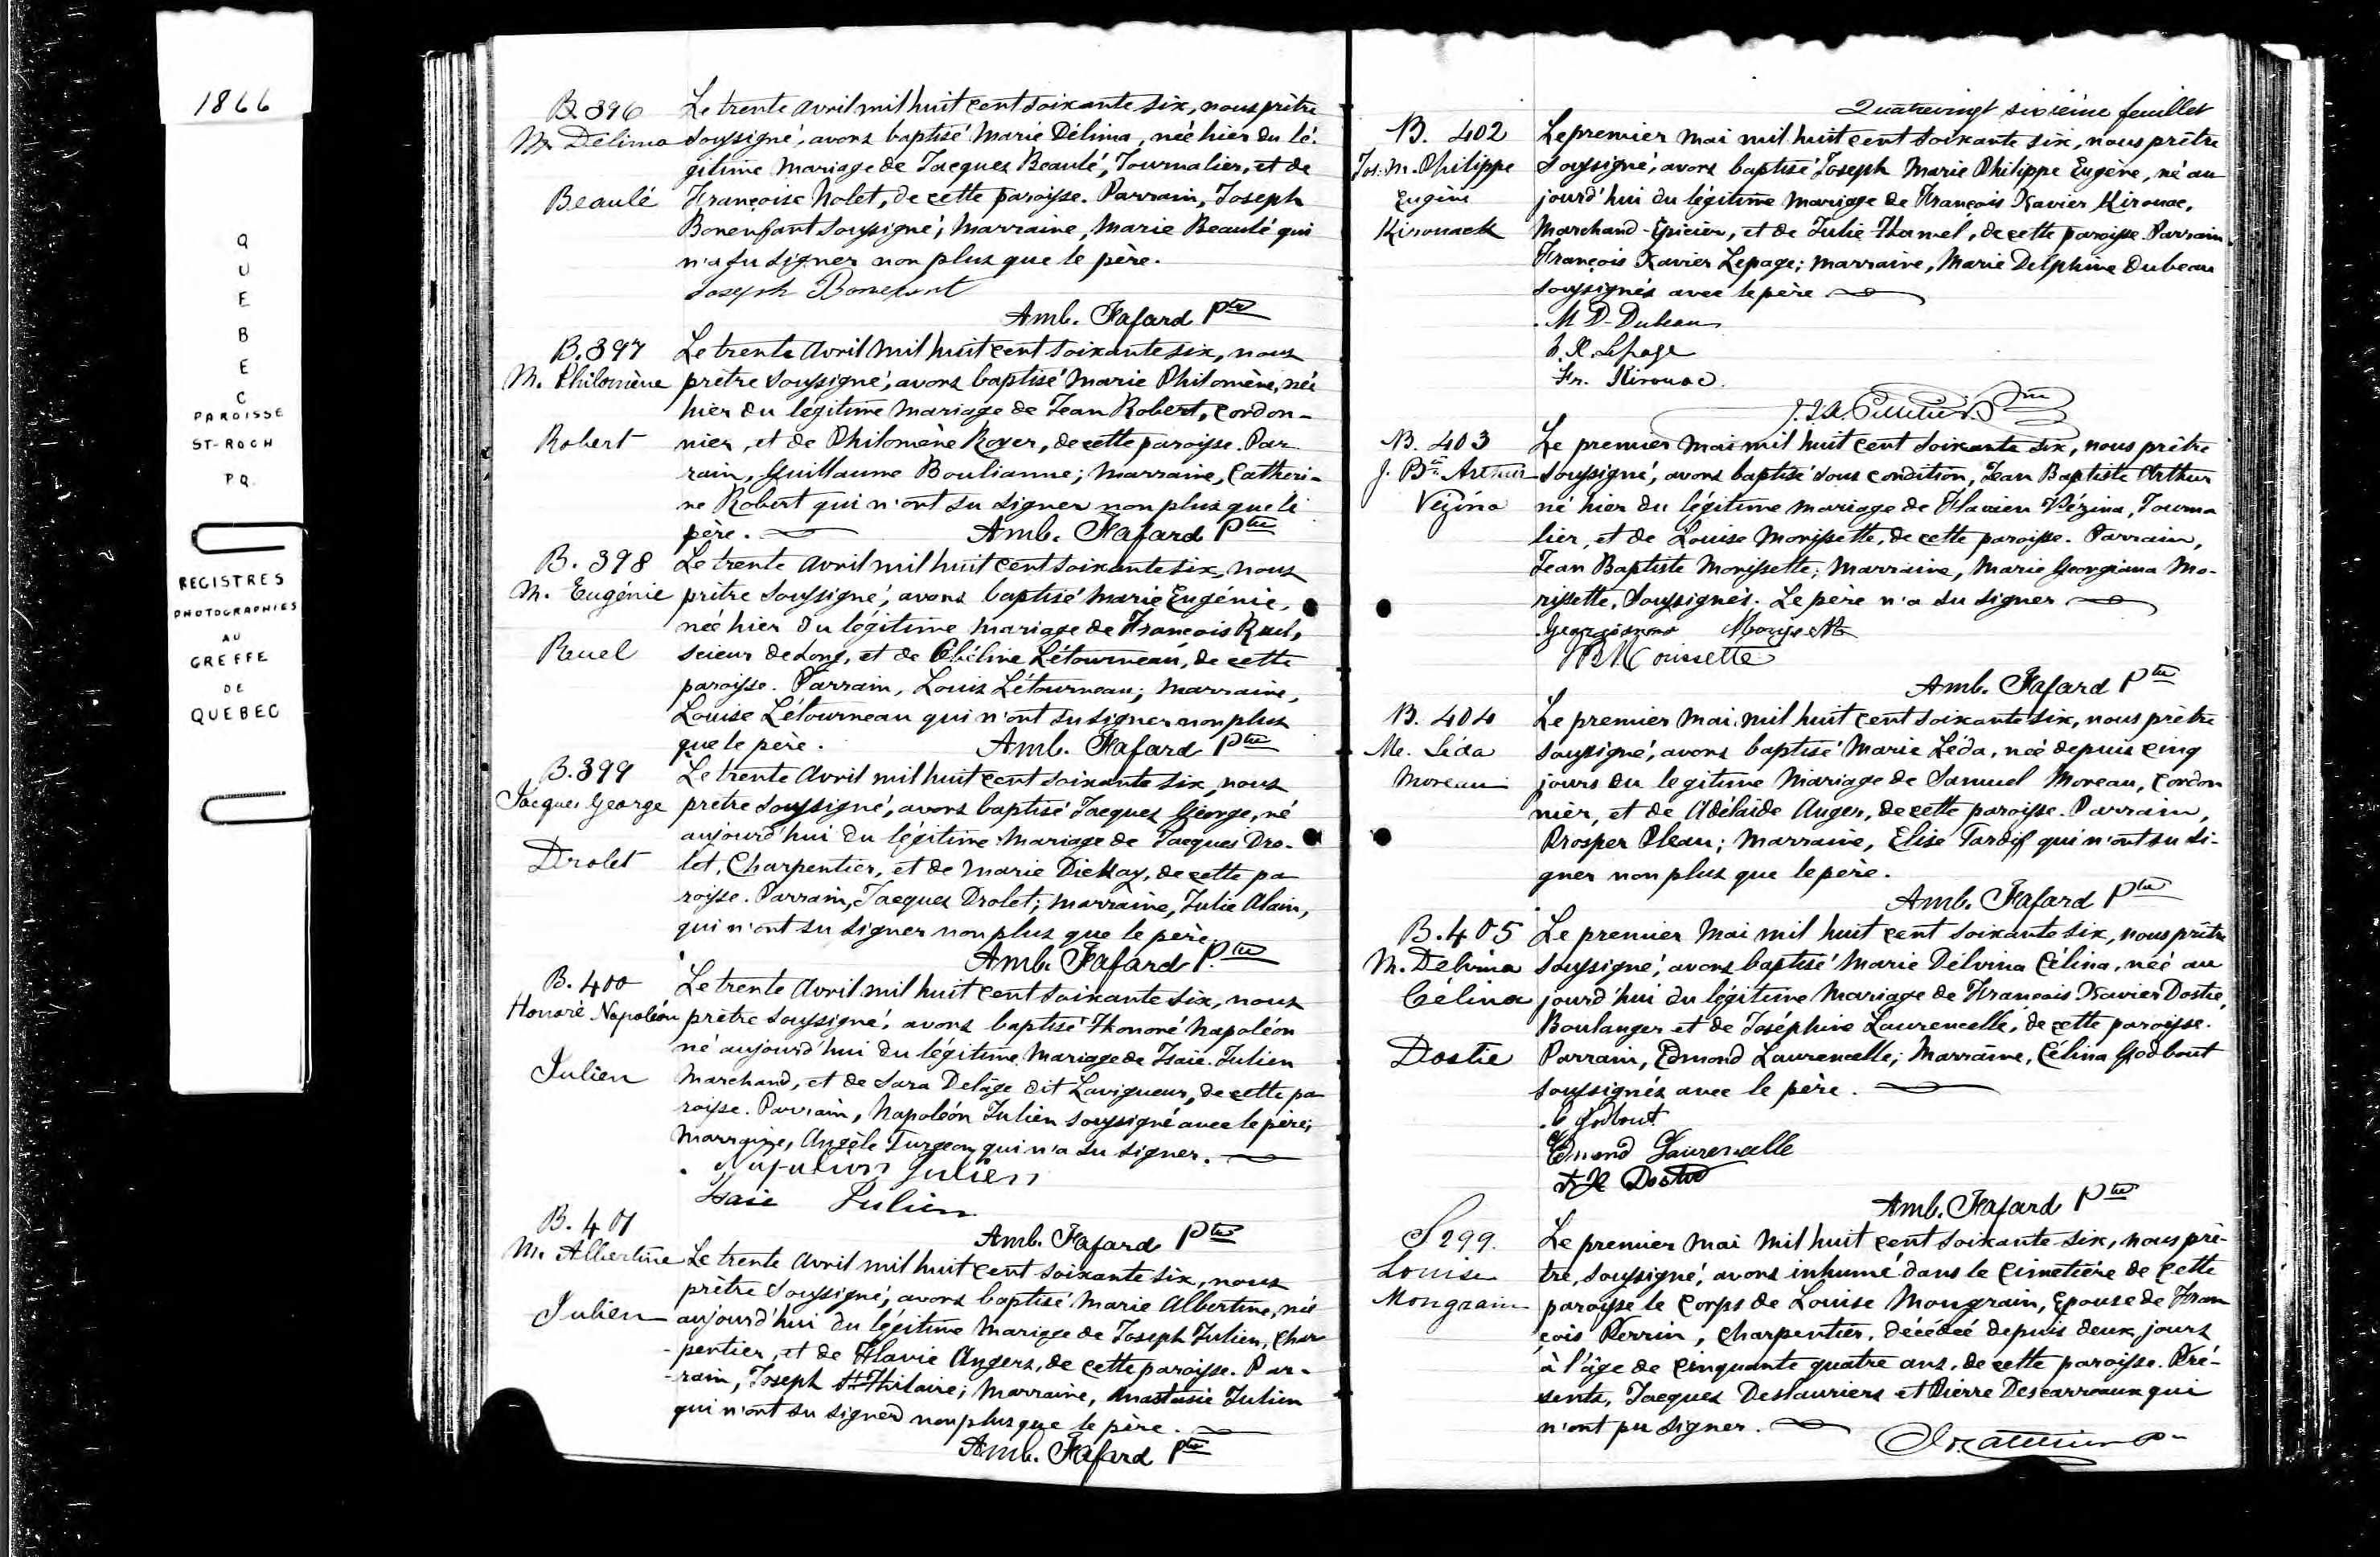 1866
QUEBEC
PAROISSE
ST-ROCH
P.Q.
REGISTRES
PHOTOGRAPHIES
AU
GREFFE
DE
QUEBEC
B. 396
M. Délima
Beaulé
Le trente avril mil huit cent soixante six, nous prêtre
soussigné, avons baptisé Marie Délima, née hier du lé-
gitime mariage de Jacques Beaulé, Journalier, et de
Françoise Nolet, de cette paroisse. Parrain, Joseph
Bonenfant soussigné; Marraine, Marie Beaulé qui
n'a su signer non plus que le père.
Joseph Bonenfant
Amb. Fafard Ptre
B. 397
M. Philomène
Robert
Le trente avril mil huit cent soixante six, nous
prêtre soussigné, avons baptisé Marie Philomène, née
hier du légitime mariage de Jean Robert, Cordon-
nier, et de Philomène Royer, de cette paroisse. Par
rain, Guillaume Boulianne; Marraine, Catheri-
ne Robert qui n'ont su signer non plus que le
père. Amb. Fafard Ptre
B. 398
M. Eugénie
Ruel
Le trente avril mil huit cent soixante six, nous
prêtre soussigné, avons baptisé Marie Eugénie,
née hier du légitime mariage de François Ruel,
scieur de long, et de Létourneau, de cette
paroisse. Parrain, Louis Létourneau; Marraine,
Louise Létourneau qui n'ont su signer non plus
que le père. Amb. Fafard Ptre
B. 399
Jacques George
Drolet
Le trente avril mil huit cent soixante six, nous
prêtre soussigné, avons baptisé Jacques George, né
aujourd'hui du légitime mariage de Jacques Dro-
let, Charpentier, et de Marie, de cette pa
roisse. Parrain, Jacques Drolet; marraine, Julie Alain,
qui n'ont su signer non plus que le père.
Amb. Fafard Ptre
B. 400
Honoré Napoléon
Julien
Le trente avril mil huit cent soixante six, nous
prêtre soussigné, avons baptisé Honoré Napoléon
né aujourd'hui du légitime mariage de Isaïe Julien
Marchand, et de Sara Delâge dit Lavigueur, de cette pa
roisse. Parrain, Napoléon Julien soussigné avec le père;
Marraine, Angèle Turgeon qui n'a su signer.
Napoléon Julien
Isaie Julien
Amb. Fafard Ptre
B. 401
M. Albertine
Julien
Le trente avril mil huit cent soixante six, nous
prêtre soussigné, avons baptisé Marie Albertine, née
aujourd'hui du légitime mariage de Joseph Julien, Char
-pentier, et de Flavie Angers, de cette paroisse. Par-
-rain, Joseph St Hilaire; Marraine, Anastasie Julien
qui n'ont su signer non plus que le père.
Amb. Fafard Ptre
Quatrevingt sixième feuillet
B. 402
Jos. M. Philippe
Eugène
Kirouack
Le premier mai mil huit cent soixante six, nous prêtre
soussigné, avons baptisé Joseph Marie Philippe Eugène, né au
jourd'hui du légitime mariage de François Xavier Kirouac,
Marchand-Epicier, et de Julie Hamel, de cette paroisse. Parrain
François Xavier Lepage; marraine, Marie Delphine Dubeau
soussignés avec le père
M D Dubeau
F. X. Lepage
Fr. Kirouac.
B. 403
J. Bte Arthur
Vézina
Le premier mai mil huit cent soixante six, nous prêtre
soussigné, avons baptisé sous condition, Jean Baptiste Arthur
né hier du légitime mariage de Flavien Vézina, Journa
lier, et de Louise Morissette, de cette paroisse. Parrain,
Jean Baptiste Morissette; Marraine, Marie Georgiana Mo-
rissette, soussignés. Le père n'a su signer
Georgianna Morissette
JB Morissette
Amb. Fafard Ptre
B. 404
Me. Léda
Moreau
Le premier mai mil huit cent soixante six, nous prêtre
soussigné, avons baptisé Marie Léda, née depuis cinq
jours du legitime mariage de Samuel Moreau, Cordon
nier, et de Adélaïde Auger, de cette paroisse. Parrain,
Prosper Pleau; Marraine, Elise Tardif qui n'ont su si-
gner non plus que le père.
Amb. Fafard Ptre
B. 405
M. Délvina
Célina
Dostie
Le premier mai mil huit cent soixante six, nous prêtre
soussigné, avons baptisé Marie Délvina Célina, née au
jourd'hui du légitime mariage de François Xavier Dostie,
Boulanger et de Joséphine Laurencelle, de cette paroisse.
Parrain, Edmond Laurencelle; Marraine, Célina Godbout
soussignés avec le père.
C Godbout
Edmond Laurencelle
F X Dostie
Amb. Fafard Ptre
S 299.
Louise
Mongrain
Le premier mai mil huit cent soixante-six, nous prê-
tre, soussigné, avons inhumé dans le Cimetière de cette
paroisse le corps de Louise Mongrain, Epouse de Fran
çois Perrin, Charpentier, décédée depuis deux jours
à l'âge de cinquante quatre ans, de cette paroisse. Pré-
sents, Jacques Deslauriers et Pierre Descarreaux qui
n'ont pu signer.